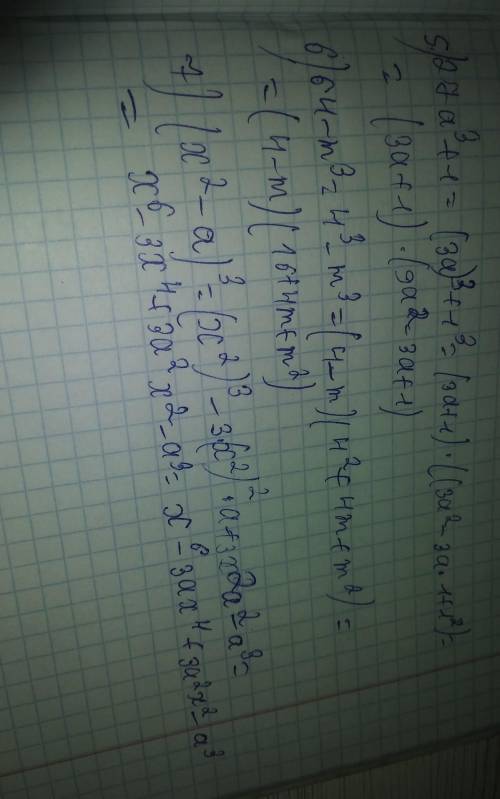 5) 27a³+1 = (3a)³+1³ = (3a+1)·((3a²-3a·1+1²)=
= (3a+1)·(9a²-3a+1)
6) 64-m³=4³-m³=(4-m)(4²+4m+m²)=
=(4-m)(16+4m+m²)
7) (x²-a)³=(x²)³-3(x²)²·a+3x²a²-a³=
= x⁶-3x⁴+3a²x²-a³= x⁶-3ax⁴+3a²x²-a³